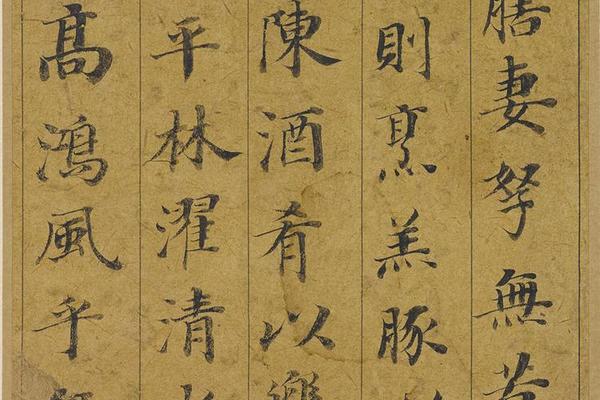 膳妻孥無苦
則烹羔豚
陳酒肴以
平林濯清水
髙鴻風乎